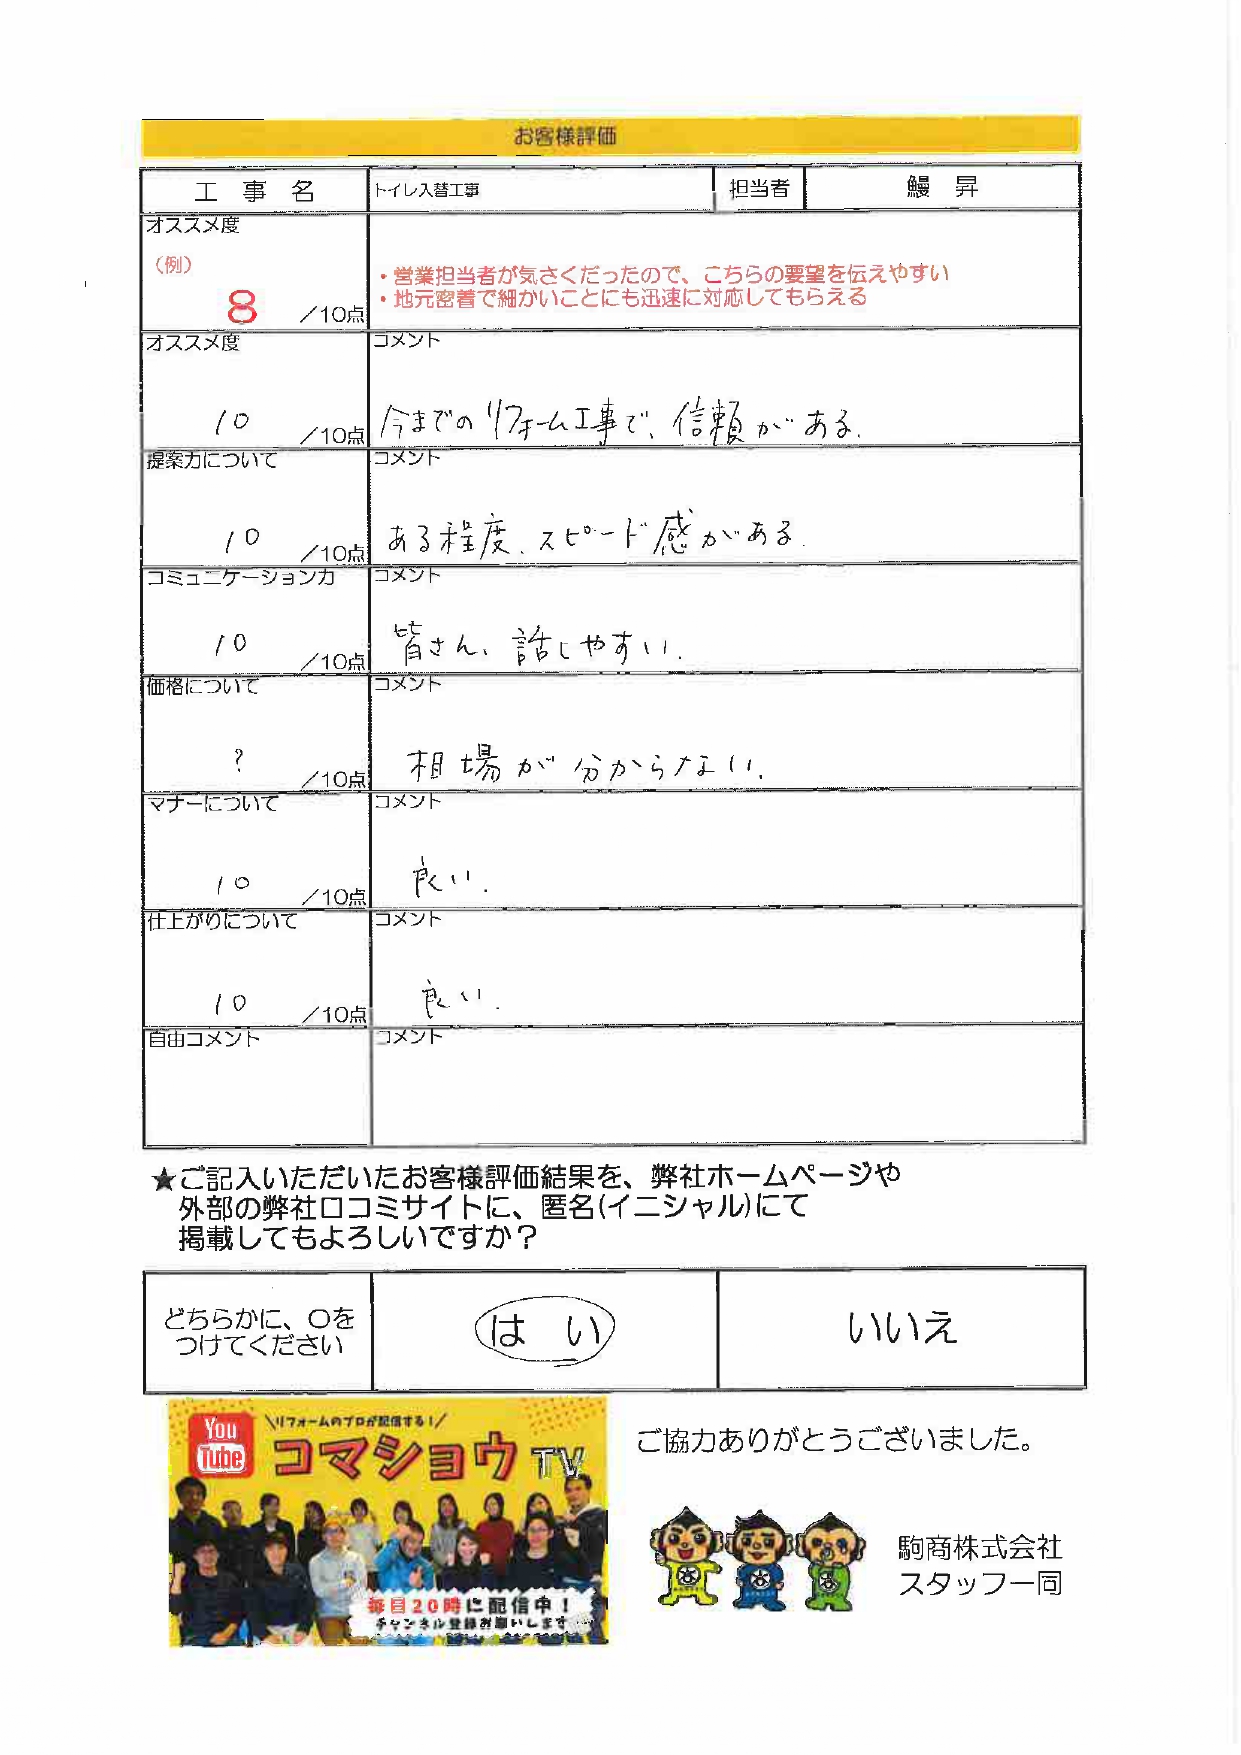 お客様評価
工 事 名 トイレ入替工事 担当者 鰻 昇
オススメ度
(例)
8 /10点
・営業担当者が気さくだったので、こちらの要望を伝えやすい
・地元密着で細かいことにも迅速に対応してもらえる
オススメ度 コメント
10 /10点 今までのリフォーム工事で、信頼がある。
提案力について コメント
10 /10点 ある程度、スピード感がある。
コミュニケーション力 コメント
10 /10点 皆さん、話しやすい。
価格について コメント
? /10点 相場が分からない。
マナーについて コメント
10 /10点 良い。
仕上がりについて コメント
10 /10点 良い。
自由コメント コメント
★ご記入いただいたお客様評価結果を、弊社ホームページや
外部の弊社口コミサイトに、匿名(イニシャル)にて
掲載してもよろしいですか?
どちらかに、〇を
つけてください
はい いいえ
You
Tube
\リフォームのプロが配信する!/
コマショウTV
毎日20時に配信中!
チャンネル登録お願いします
ご協力ありがとうございました。
駒商株式会社
スタッフ一同